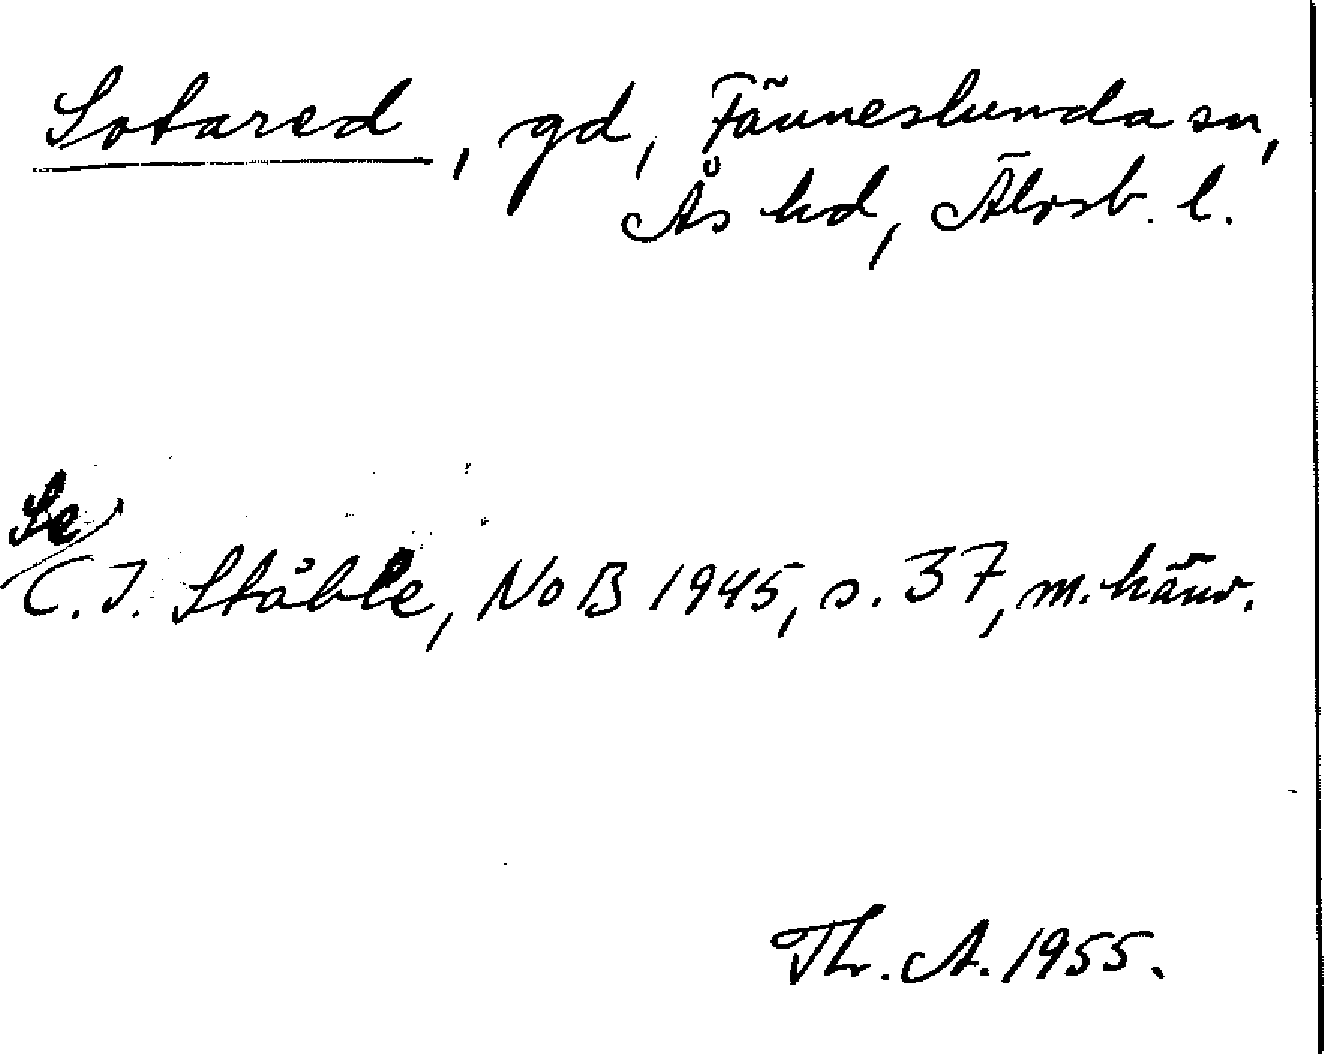 Sotared, gd, Fänneslunda sn,
Ås hd, Älvsb. l.
Se
C. I. Ståhle, NoB 1945, s. 37, m. hänv.
Th. A. 1955.